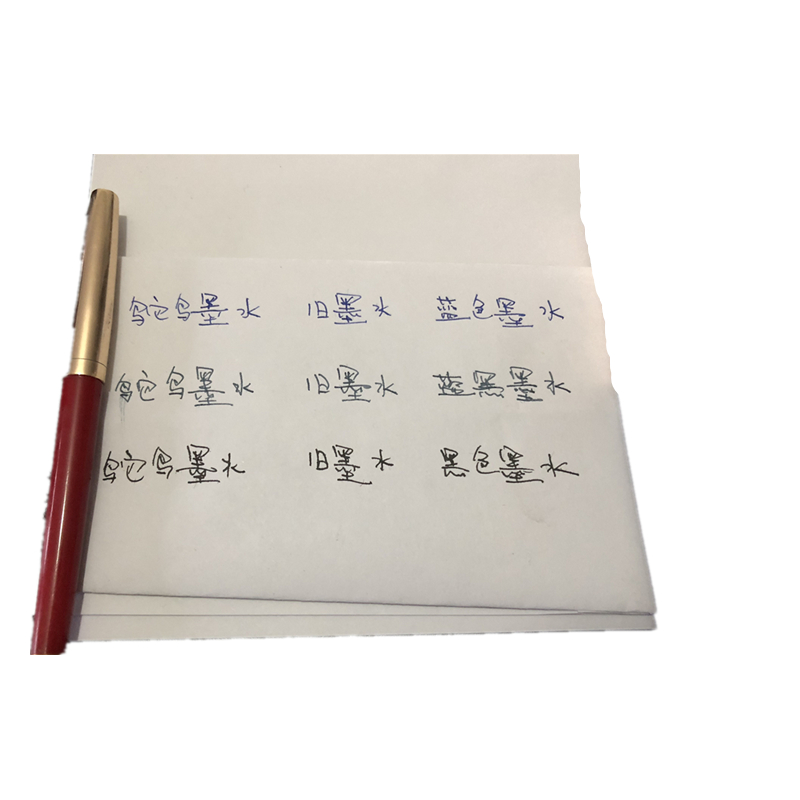 鸵鸟墨水 旧墨水 蓝色墨水
鸵鸟墨水 旧墨水 蓝黑墨水
鸵鸟墨水 旧墨水 黑色墨水